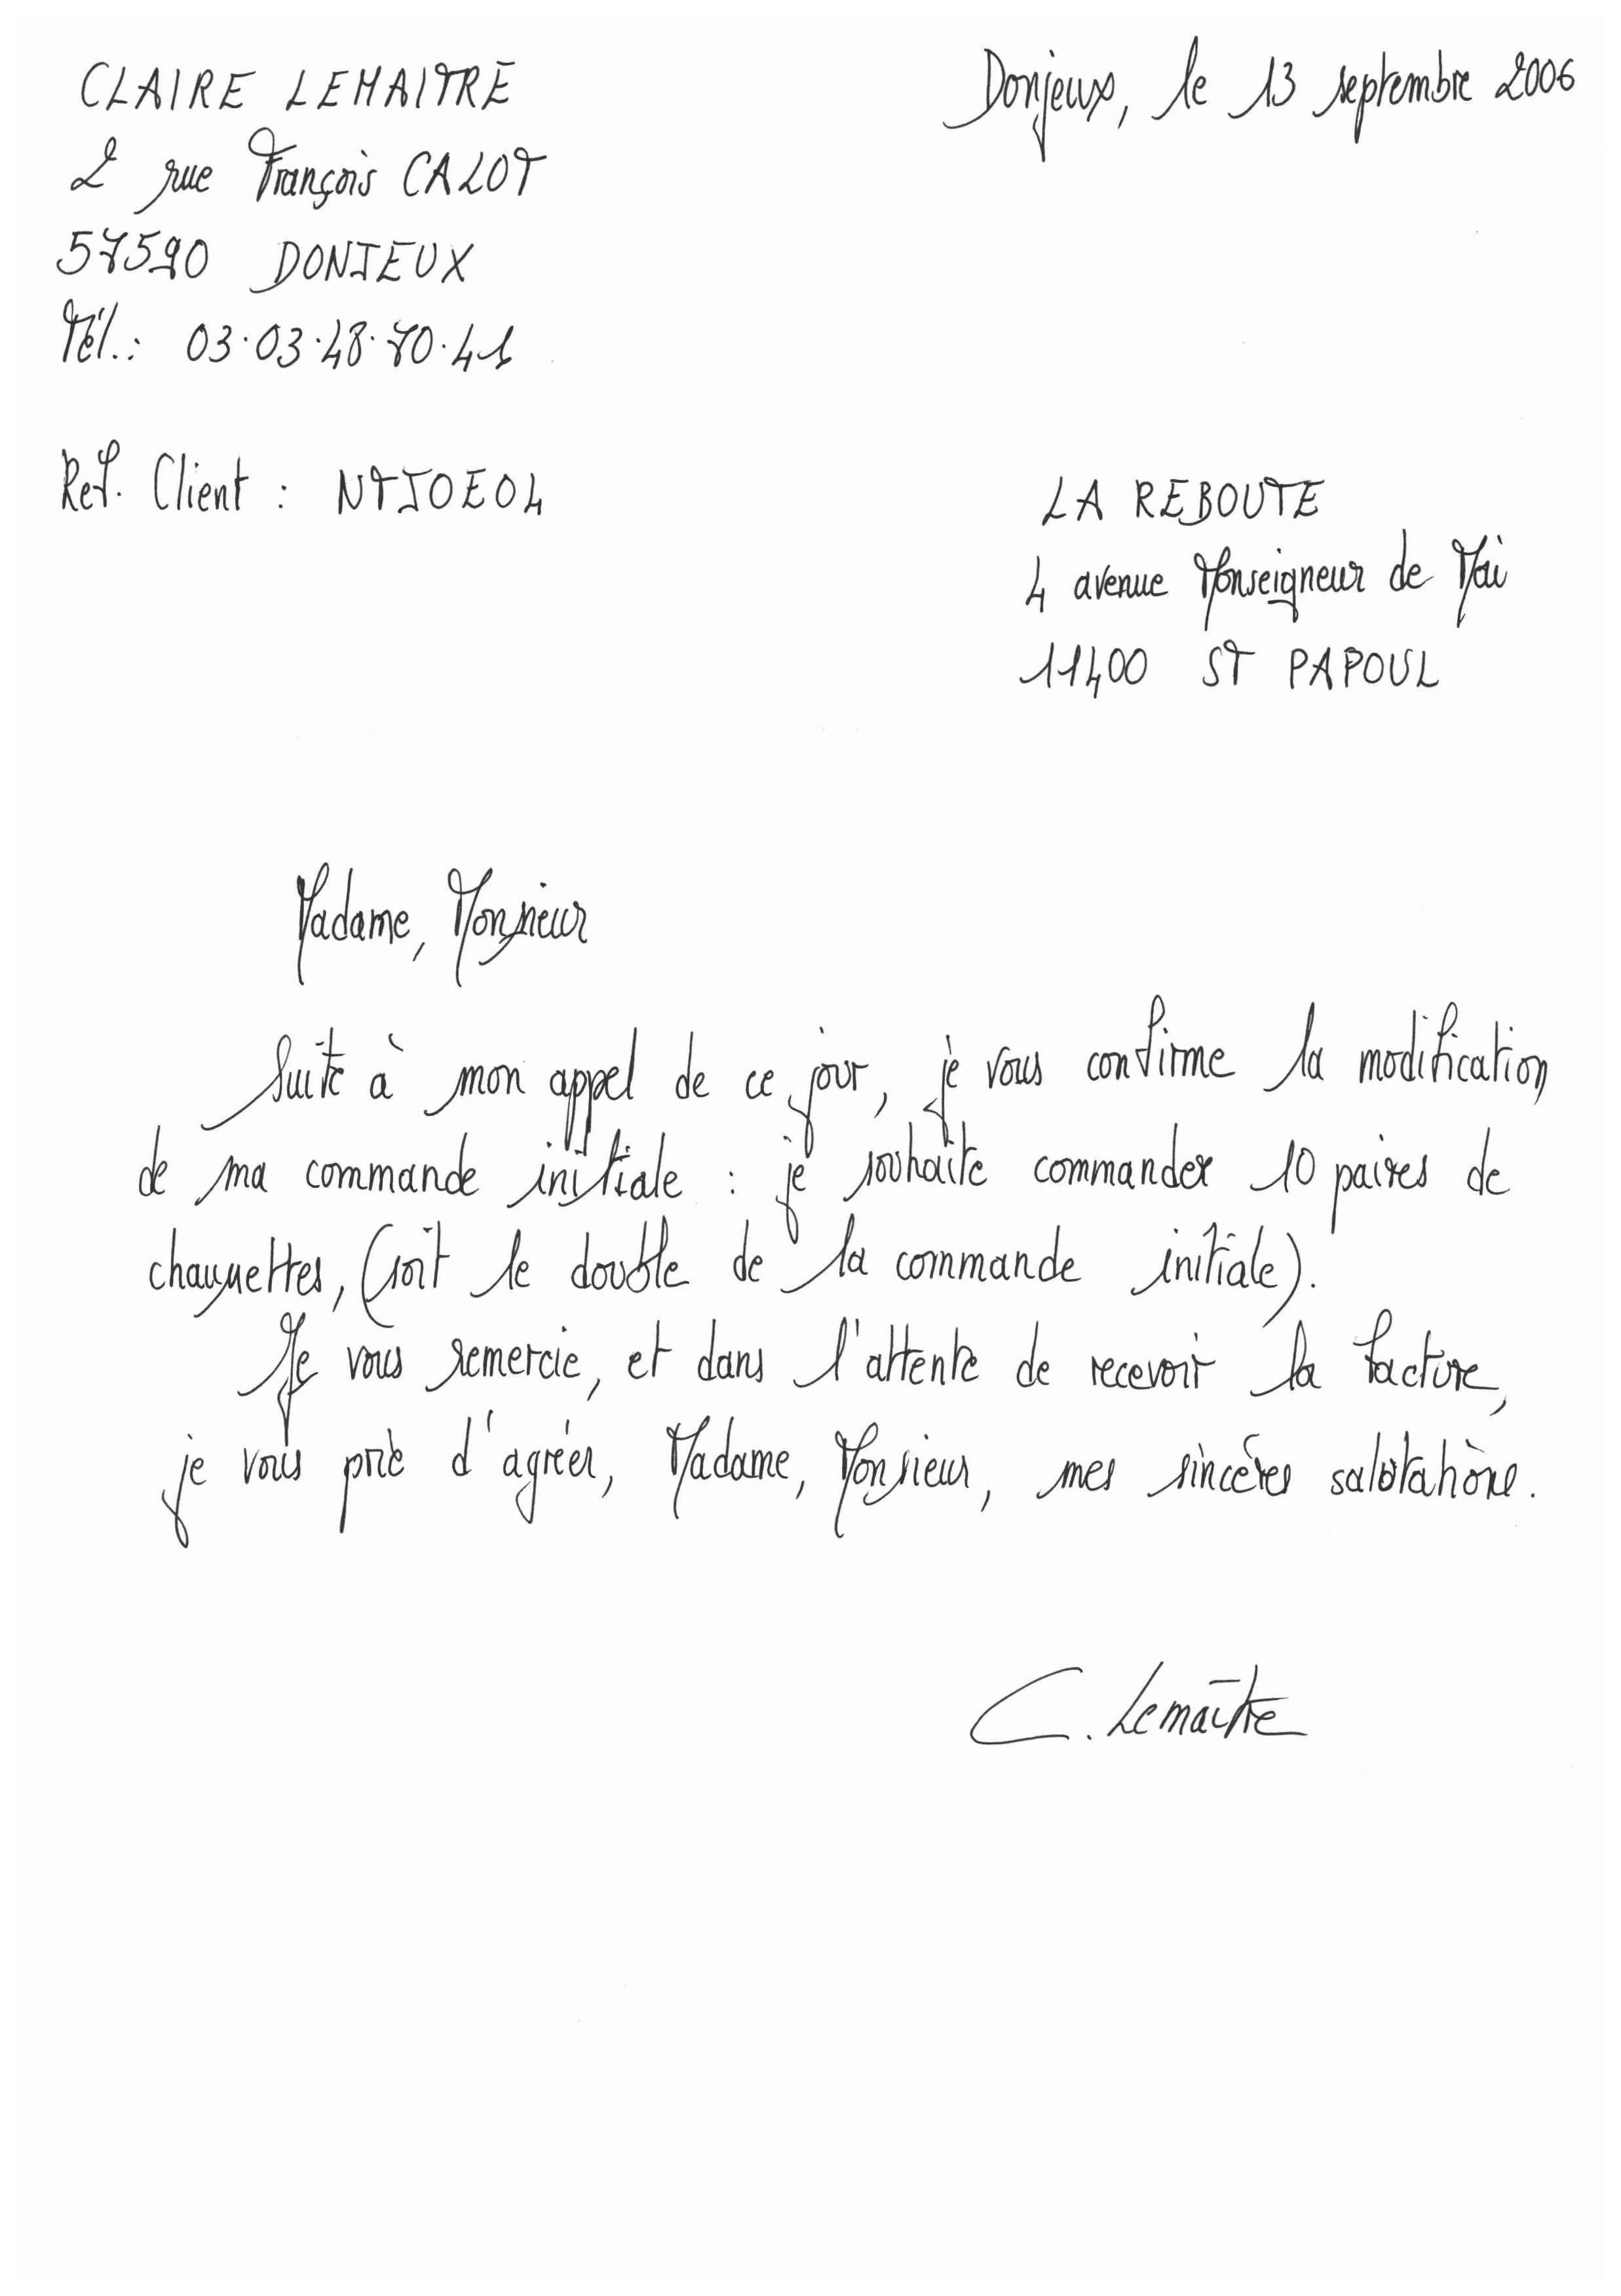 CLAIRE LEMAITRE
Donjeux, le 13 septembre 2006
2 rue François CALOT
57590 DONJEUX
Tél.: 03.03.48.70.41
Ref. Client : NTJOE04
LA REBOUTE
4 avenue Monseigneur de Mai
11400 ST PAPOUL
Madame, Monsieur
Suite à mon appel de ce jour, je vous confirme la modification
de ma commande initiale : je souhaite commander 10 paires de
chaussettes, (soit le double de la commande initiale).
Je vous remercie, et dans l'attente de recevoir la facture,
je vous prie d'agréer, Madame, Monsieur, mes sincères salutations.
C. Lemaître